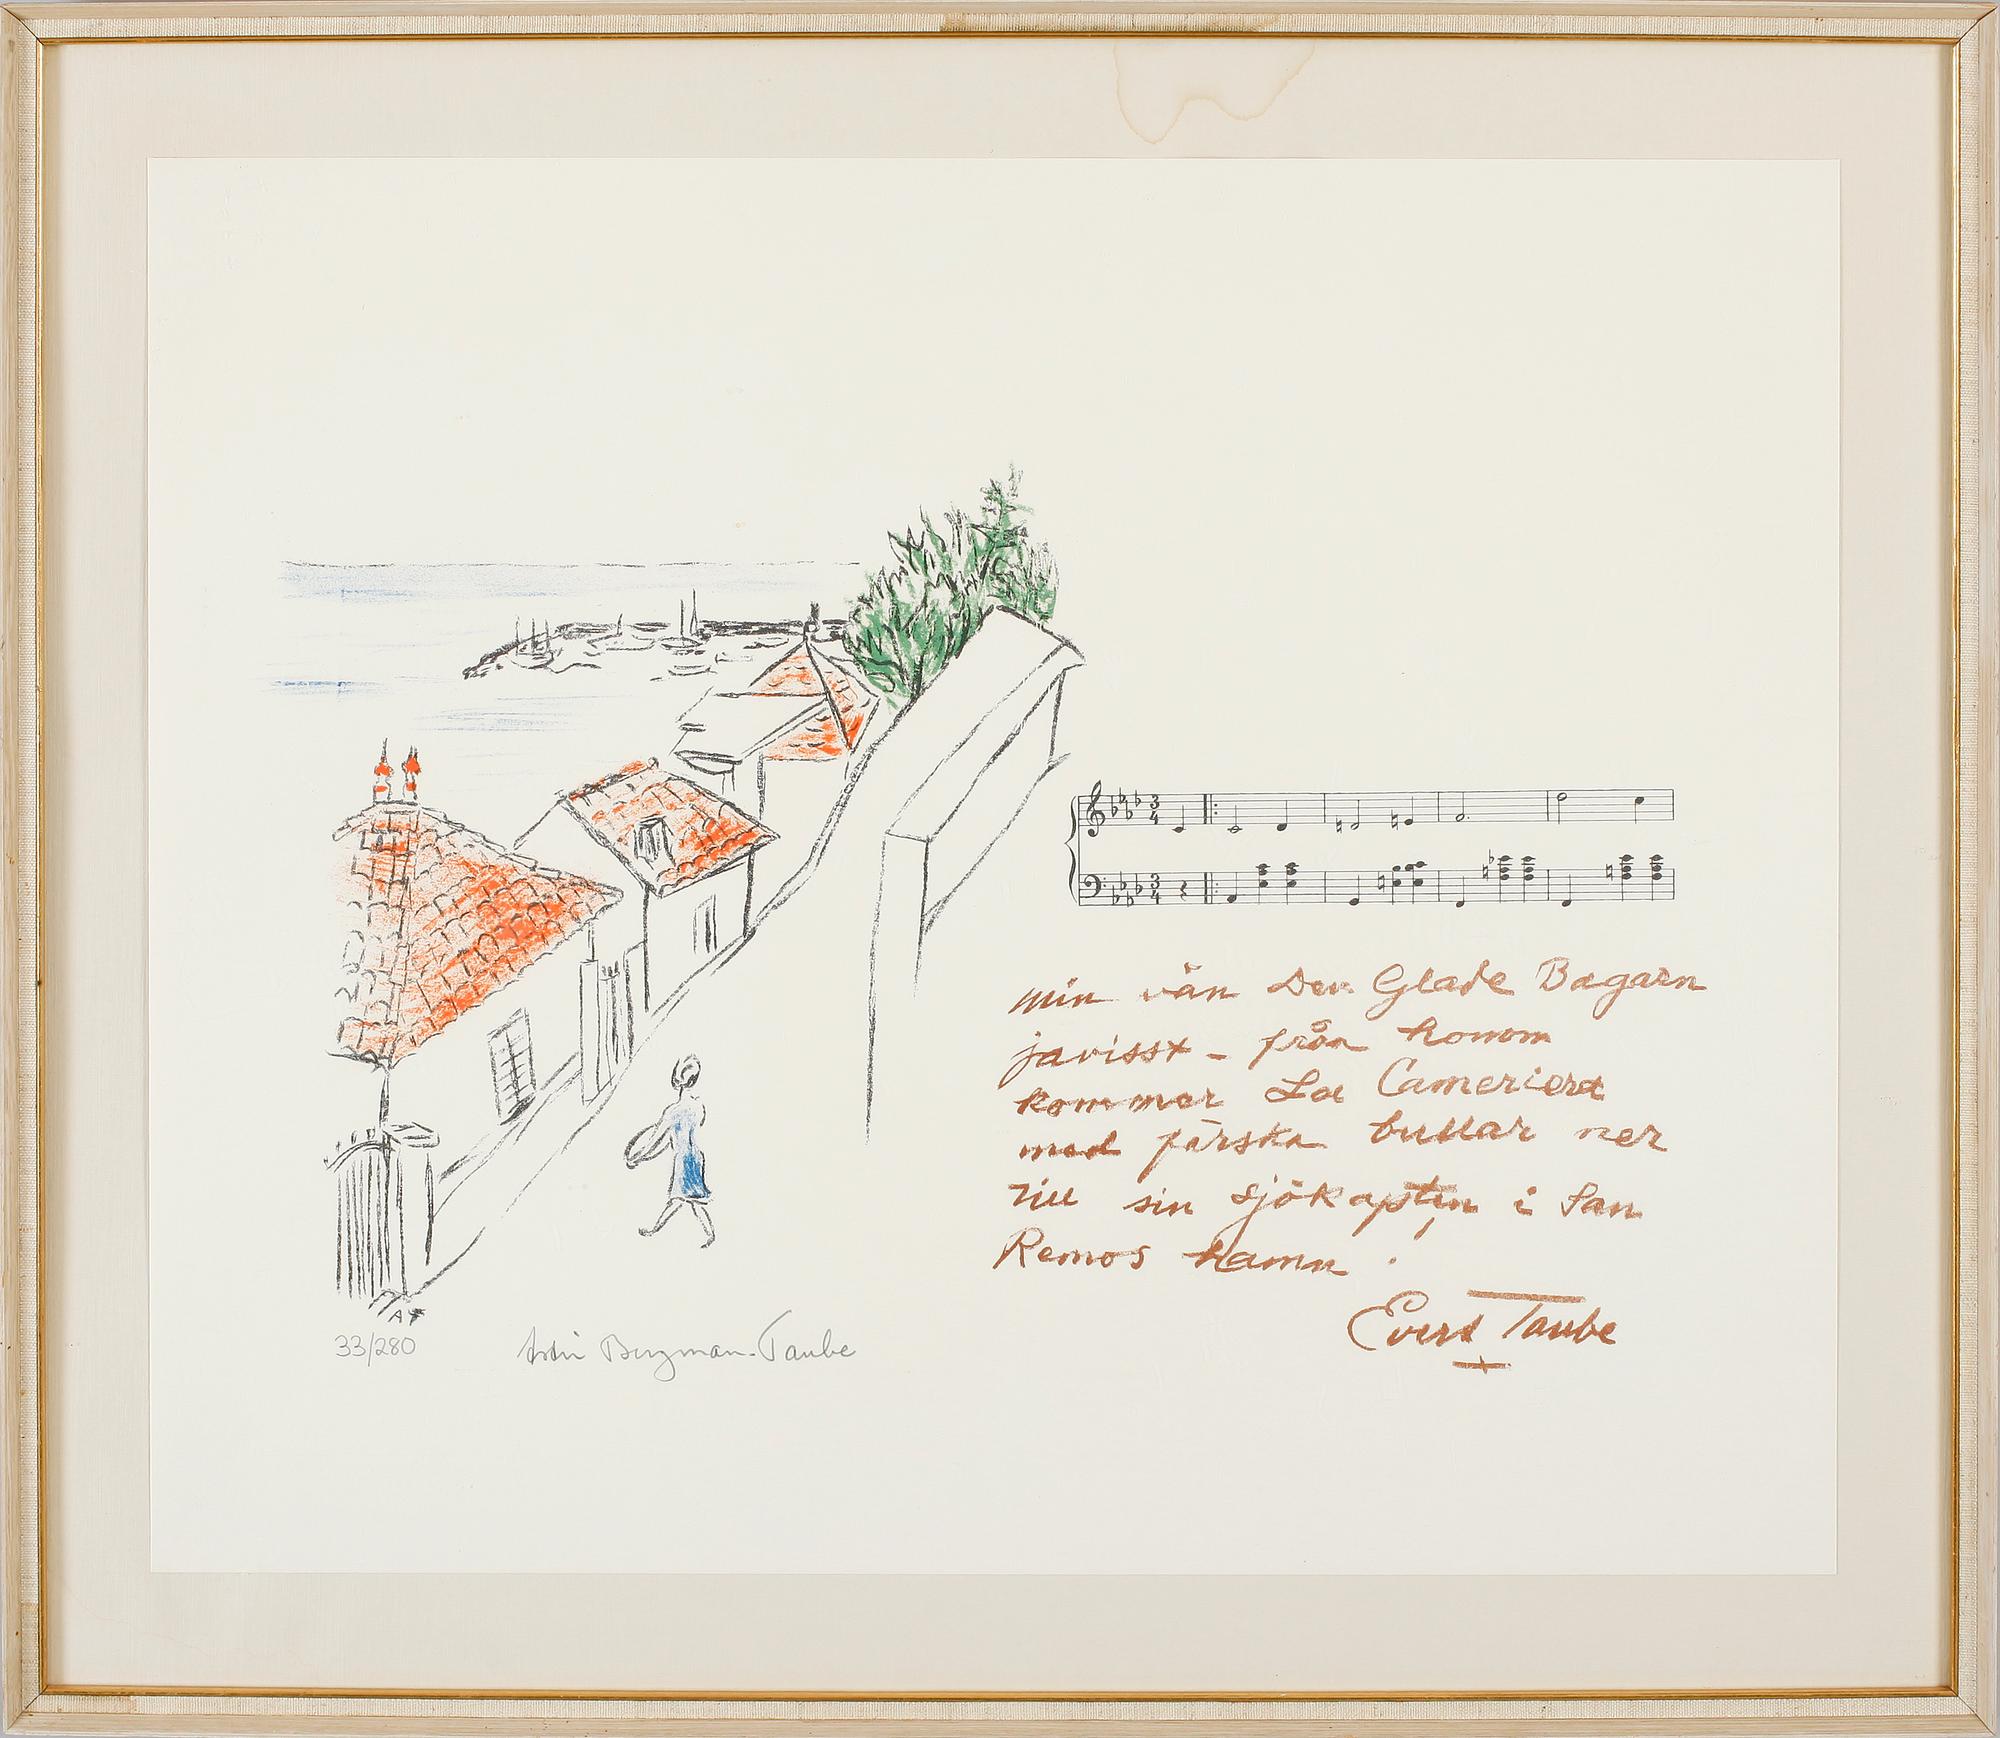 3
4
3
4
min vän Den Glade Bagarn
javisst - från honom
kommer La Cameriera
med färska bullar ner
till sin sjökapten i San
Remos hamn!
Evert Taube
AT
33/280 Astri Bergman-Taube